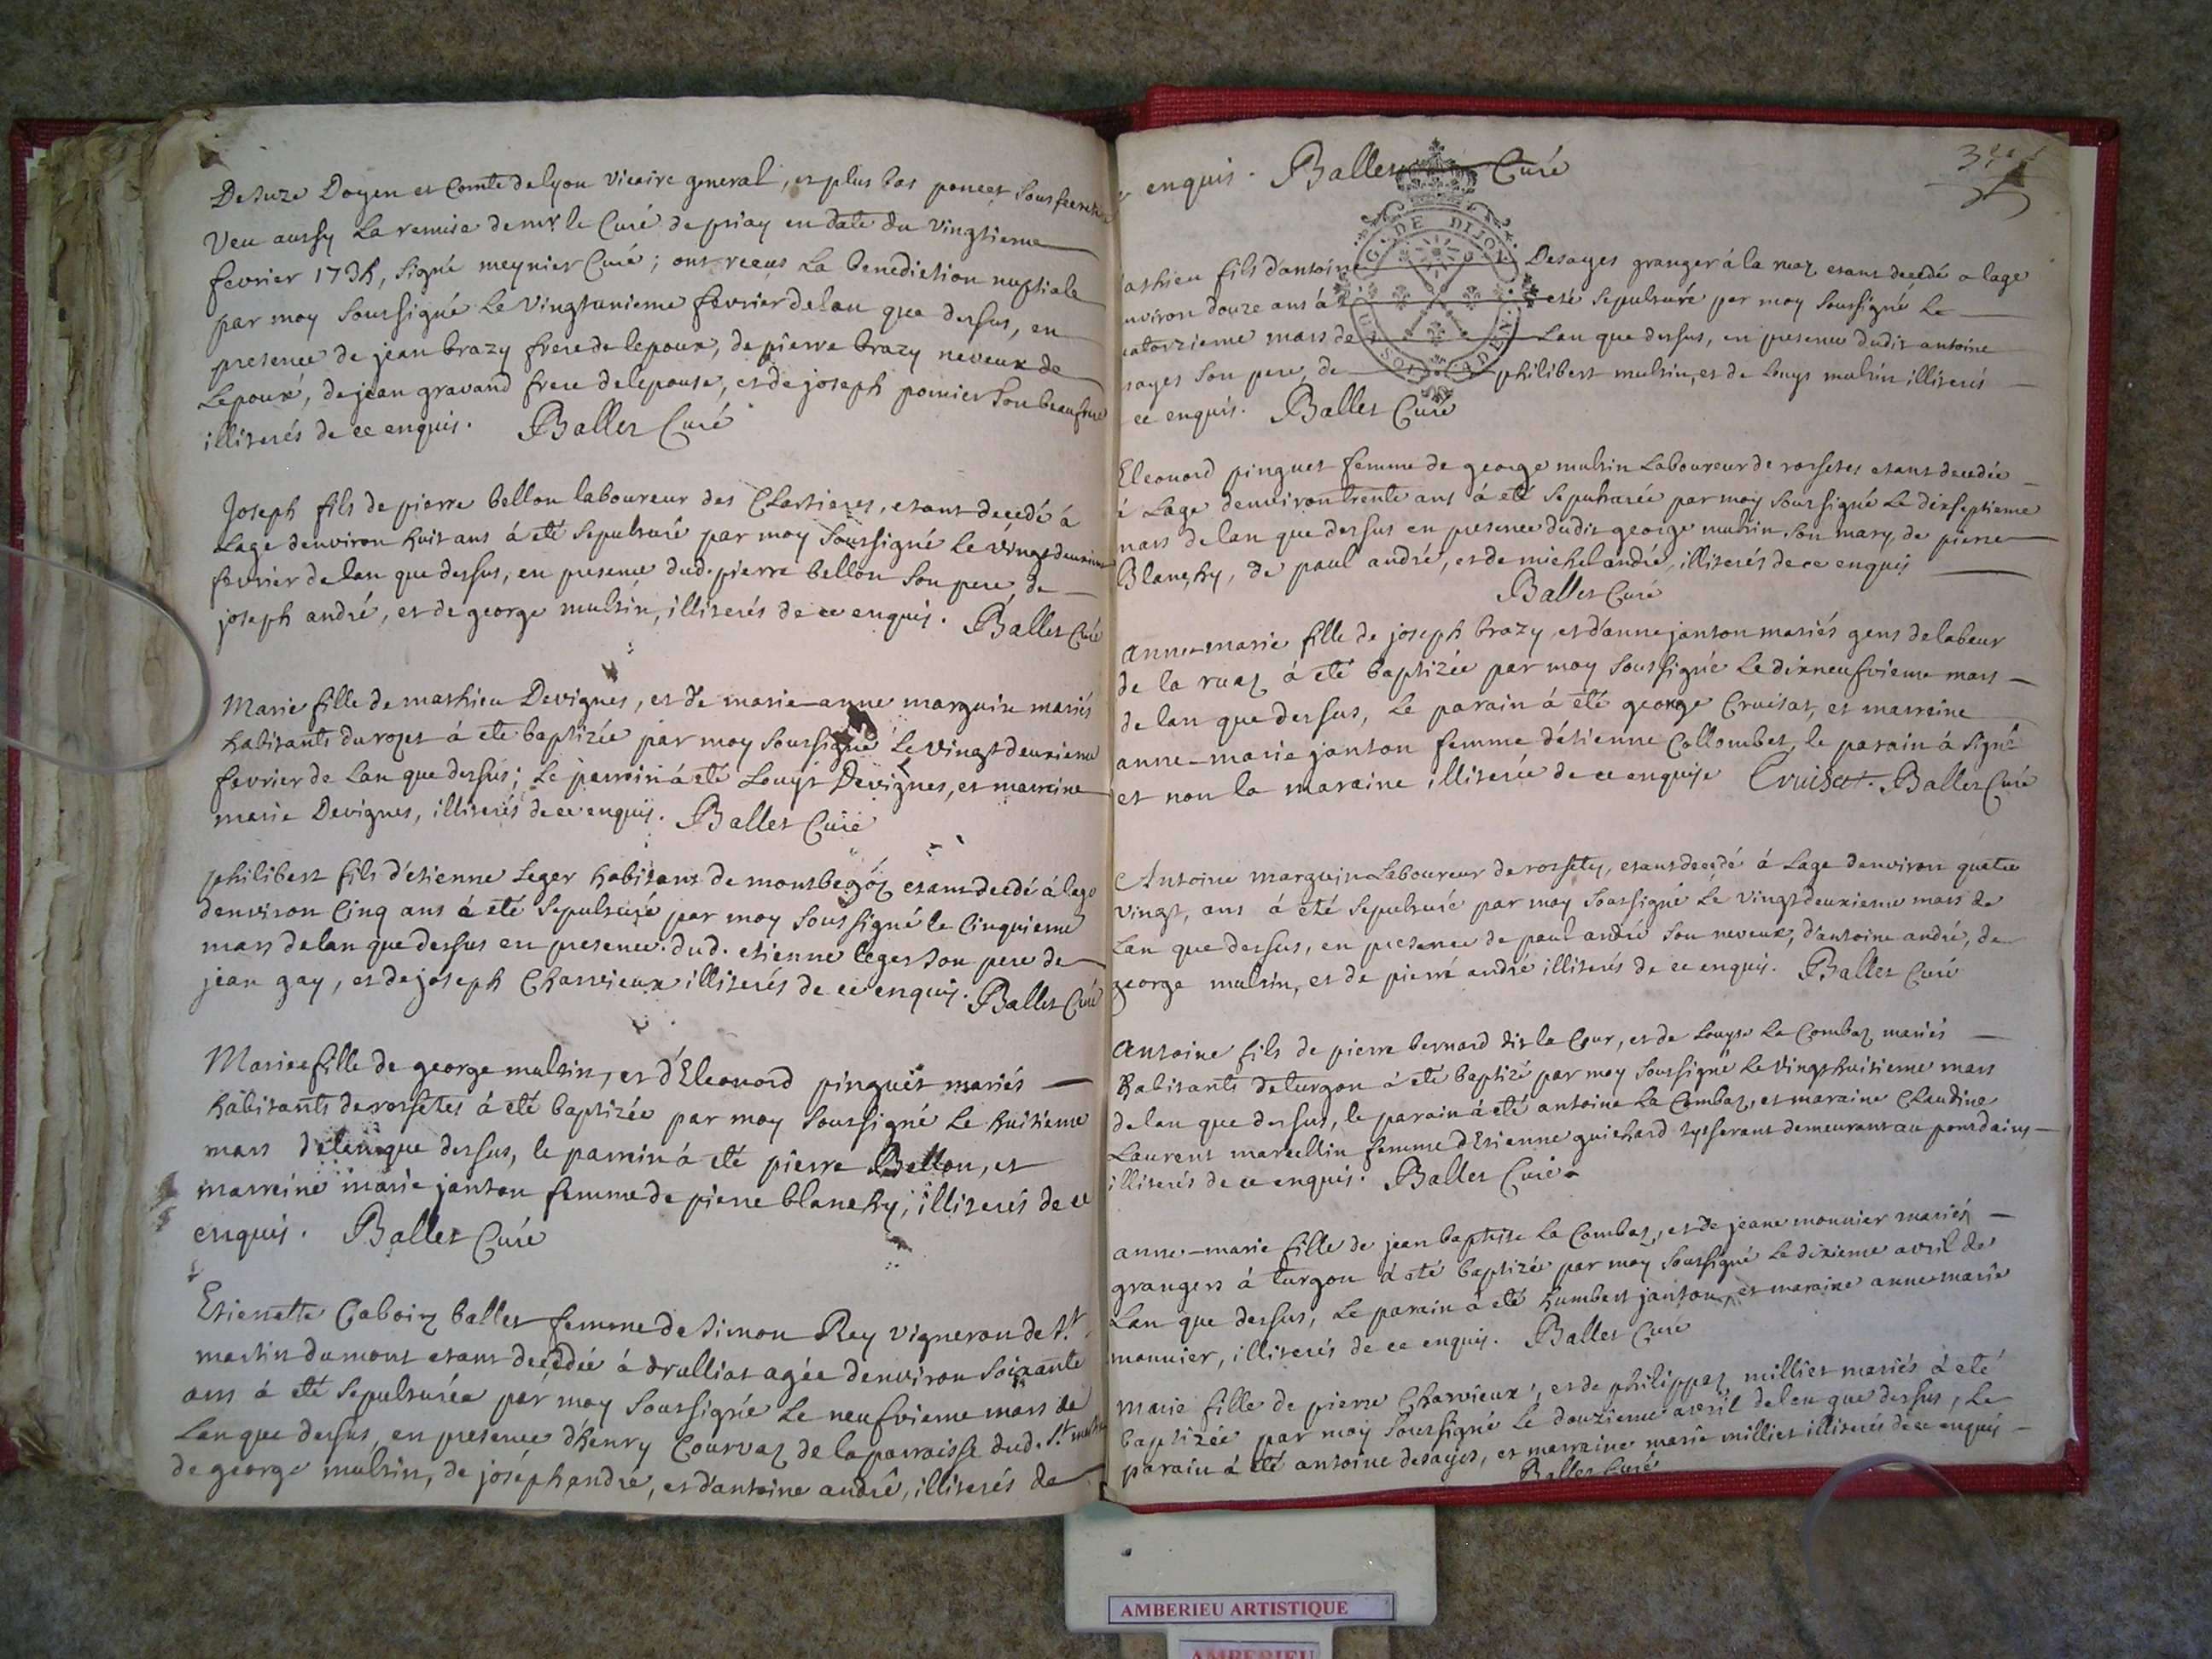 De Suze Doyen et Comte de lyon vicaire general, et plus bas poncet
Veu aussy la remise de mr. le Curé de priay en date du vingtieme
fevrier 1734, signé meynier Curé; ont recus la benediction nuptiale
par moy soussigné le vingtunieme fevrier de lan que dessus, en
presence de jean brazy frere de lepoux, de pierre brazy neveux de
Lepoux, de jean gravand frere de lepouse, et de joseph pomier son beaufrere
illiterés de ce enquis. Ballet Curé
Joseph fils de pierre bellon laboureur des Chartieres, etant decedé à
Lage denviron huit ans á eté sepulturé par moy soussigné le vingtdeuxieme
fevrier de lan que dessus, en presence dud. pierre bellon son pere, de
joseph andré, et de george multin, illiterés de ce enquis. Ballet Curé
Marie fille de mathieu Devignes, et de marie-anne marguin mariés
habitants du rozet á eté baptizée par moy soussigné Le vingtdeuxieme
fevrier de Lan que dessus; Le parrein á eté Louys Devignes, et marreine
marie Devignes, illiterés de ce enquis. Ballet Curé
philibert fils d'etienne Leger habitant de montbegoz etant decedé á lage
denviron Cinq ans á eté sepulturé par moy soussigné le Cinquieme
mars de lan que dessus en presence dud. etienne leger son pere de
jean gay, et de joseph Charvieux illiterés de ce enquis. Ballet Curé
Marie fille de george multin, et d'Eleonord pinguet mariés
habitants de rossetes á eté baptizée par moy soussigné Le huitieme
mars de lan que dessus, le parrein á eté pierre Bellon, et
marreine marie janton femme de pierre blanchy, illiterés de ce
enquis. Ballet Curé
Etienette Caboirz ballet femme de simon Rey vigneron de St.
martin du mont etant decedée á drulliat agée denviron soixante
ans á eté sepulturée par moy soussigné Le neufvieme mars de
Lan que dessus, en presence d'henry Courvaz de la parroisse dud. St. martin
de george multin, de joseph andre, et d'antoine andré, illiterés de
enquis. Ballet Curé
G. DE DIJON
mathieu fils d'antoine Desayes granger á la ruaz etant decedé a lage
environ douze ans á eté sepulturé par moy soussigné Le
quatorzieme mars de Lan que dessus, en presence dudit antoine
sayes son pere, de philibert multin, et de Louys multin illiterés
ce enquis. Ballet Curé
Eleonord pinguet femme de george multin Laboureur de rossetes etant decedée
á Lage denviron trente ans á eté sepulturée par moy soussigné Le dixseptieme
mars de lan que dessus en presence dudit george multin son mary, de pierre
Blanchy, de paul andré, et de michel andré, illiterés de ce enquis
Ballet Curé
anne-marie fille de joseph brazy et d'anne janton mariés gens de labeur
de la ruaz á eté baptizée par moy soussigné Le dixneufvieme mars
de lan que dessus, Le parain á eté george Cruisat, et marreine
anne-marie janton femme d'etienne Collombet, le parain á signé
et non la maraine illiterée de ce enquise Cruisat. Ballet Curé
Antoine marguin Laboureur de rossetes, etant decedé á Lage denviron quatre
vingt, ans á eté sepulturé par moy soussigné Le vingtdeuxieme mars de
Lan que dessus, en presence de paul andré son neveux, d'antoine andré, de
george multin, et de pierre andré illiterés de ce enquis. Ballet Curé
antoine fils de pierre bernard dit la Cour, et de Louyse La Combaz mariés
habitants de turgon á eté baptizé par moy soussigné Le vingthuitieme mars
de lan que dessus, le parain á eté antoine La Combaz, et maraine Claudine
Laurent marcellin femme d'Etienne guichard tysserant demeurant au pontdains
illiterés de ce enquis. Ballet Curé
anne-marie fille de jean baptiste La Combaz, et de jeane monnier mariés
grangers á turgon á eté baptizée par moy soussigné Le dixieme avril de
Lan que dessus, Le parain á eté humbert janton, et maraine anne marie
monnier, illiterés de ce enquis. Ballet Curé
Marie fille de pierre Charvieux, et de philippaz milliet mariés á eté
baptizée par moy soussigné Le douzieme avril de lan que dessus, Le
parain á eté antoine desayes, et marraine marie milliet illiterés de ce enquis
Ballet Curé
AMBERIEU ARTISTIQUE
AMBERIEU